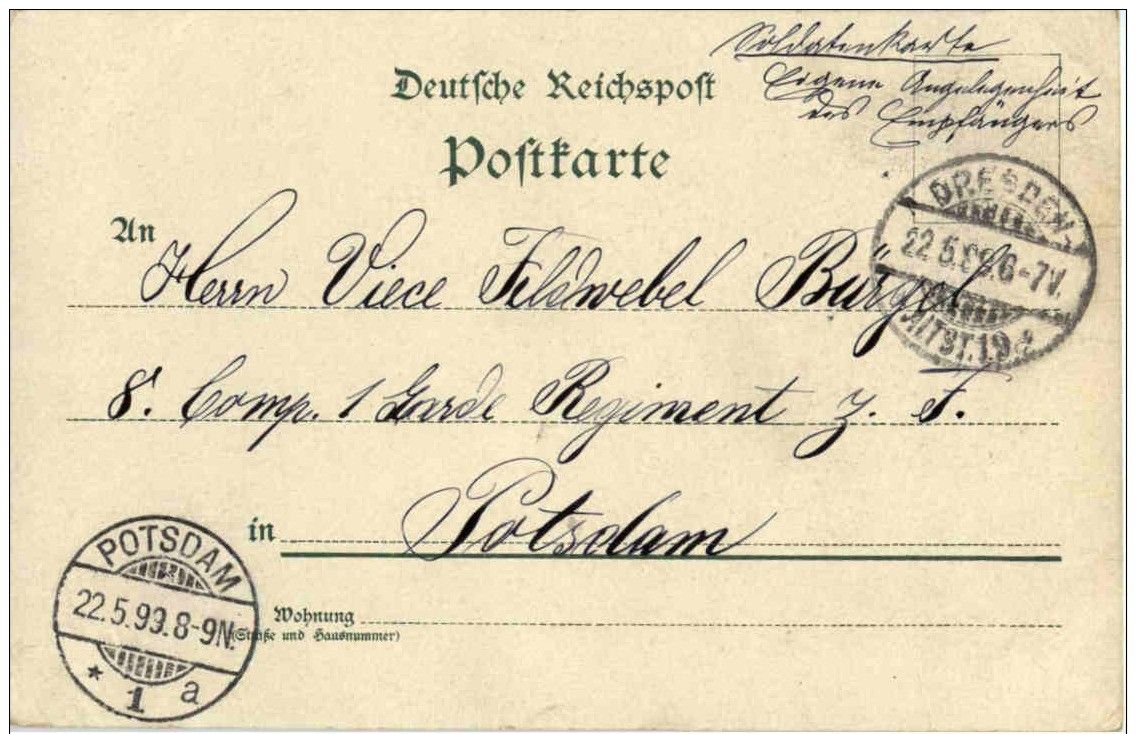 Soldatenkarte
Eigene Angelegenheit
des Empfängers
Deutsche Reichspost
Postkarte
DRESDEN-
22.5.99.6-7V.
ALTST.19.
An Herrn Viece Feldwebel Bürgel
8. Comp. 1 Garde Regiment z. F.
in Potsdam
Wohnung
(Straße und Hausnummer)
POTSDAM
22.5.99.8-9N.
* 1 a